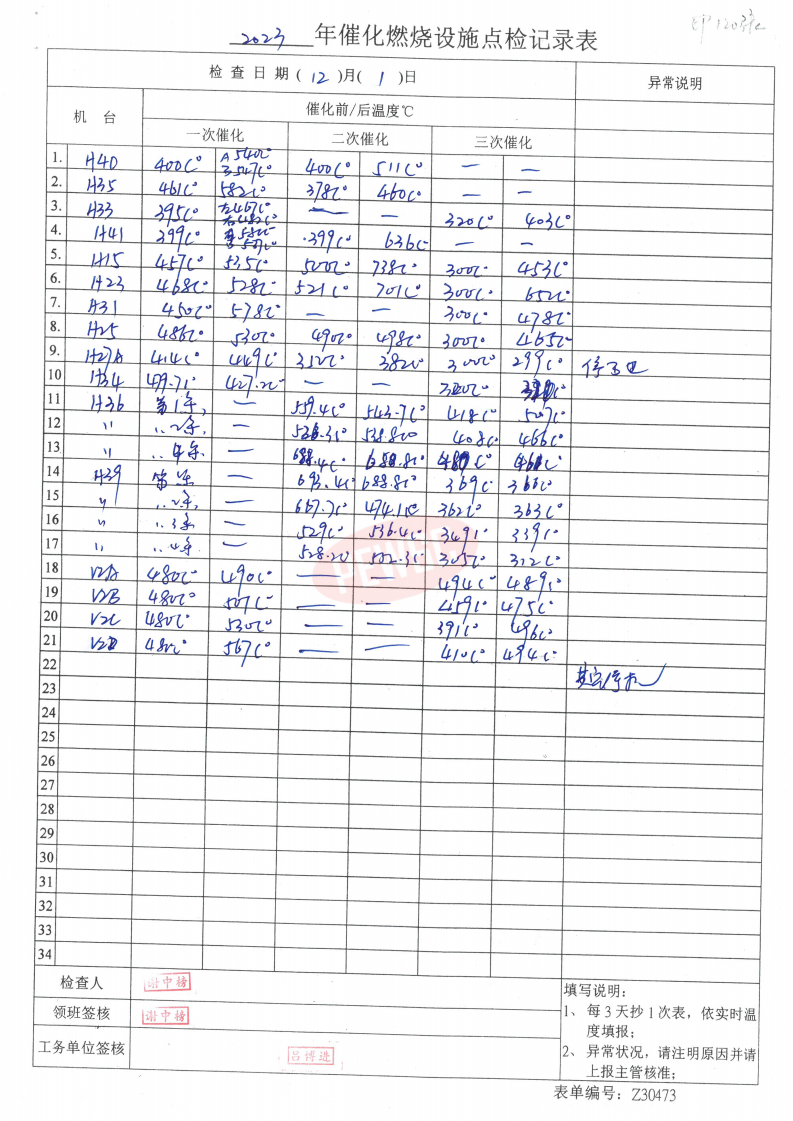 2023 年催化燃烧设施点检记录表
检查日期(12)月(1)日 异常说明
机台 催化前/后温度℃
一次催化 二次催化 三次催化
1. H40 400C° A540C° B547C° 400C° 511C° — —
2. H35 461C° 582C° 378C° 460C° — —
3. H33 395C° 左467C° 右482C° — — 320C° 403C°
4. H41 399C° 399C° 636C° — —
5. H15 457C° 535C° 500C° 738C° 300C° 453C°
6. H23 468C° 528C° 521C° 701C° 300C° 652C°
7. H31 450C° 578C° — — 300C° 478C°
8. H25 486C° 530C° 490C° 498C° 300C° 465C°
9. H27A 414C° 449C° 312C° 382C° 300C° 299C°
10 H34 427.2C° — — 320C°
11 H36 第1年, — 559.4C° 543.7C° 418C° 507C°
12 〃 — 538.8C° 408C° 466C°
13 〃 — 688.4C°
14 H39 — 693.4C° 688.8C° 369C° 366C°
15 〃 — 667.7C° 474.1C° 362C° 363C°
16 〃 — 529C° 536.4C° 349C° 339C°
17 〃 — 528.2C° 532.3C° 305C° 312C°
18 V2A 480C° 490C° — — 494C° 489C°
19 V2B 480C° 507C° — — 459C° 475C°
20 V2C 480C° 530C° — — 391C° 496C°
21 V2D 480C° 567C° — — 410C° 494C°
22
23
24
25
26
27
28
29
30
31
32
33
34
检查人 谢中榜
领班签核 谢中榜
工务单位签核 吕博进
填写说明:
1、每3天抄1次表，依实时温
度填报;
2、异常状况，请注明原因并请
上报主管核准;
表单编号: Z30473